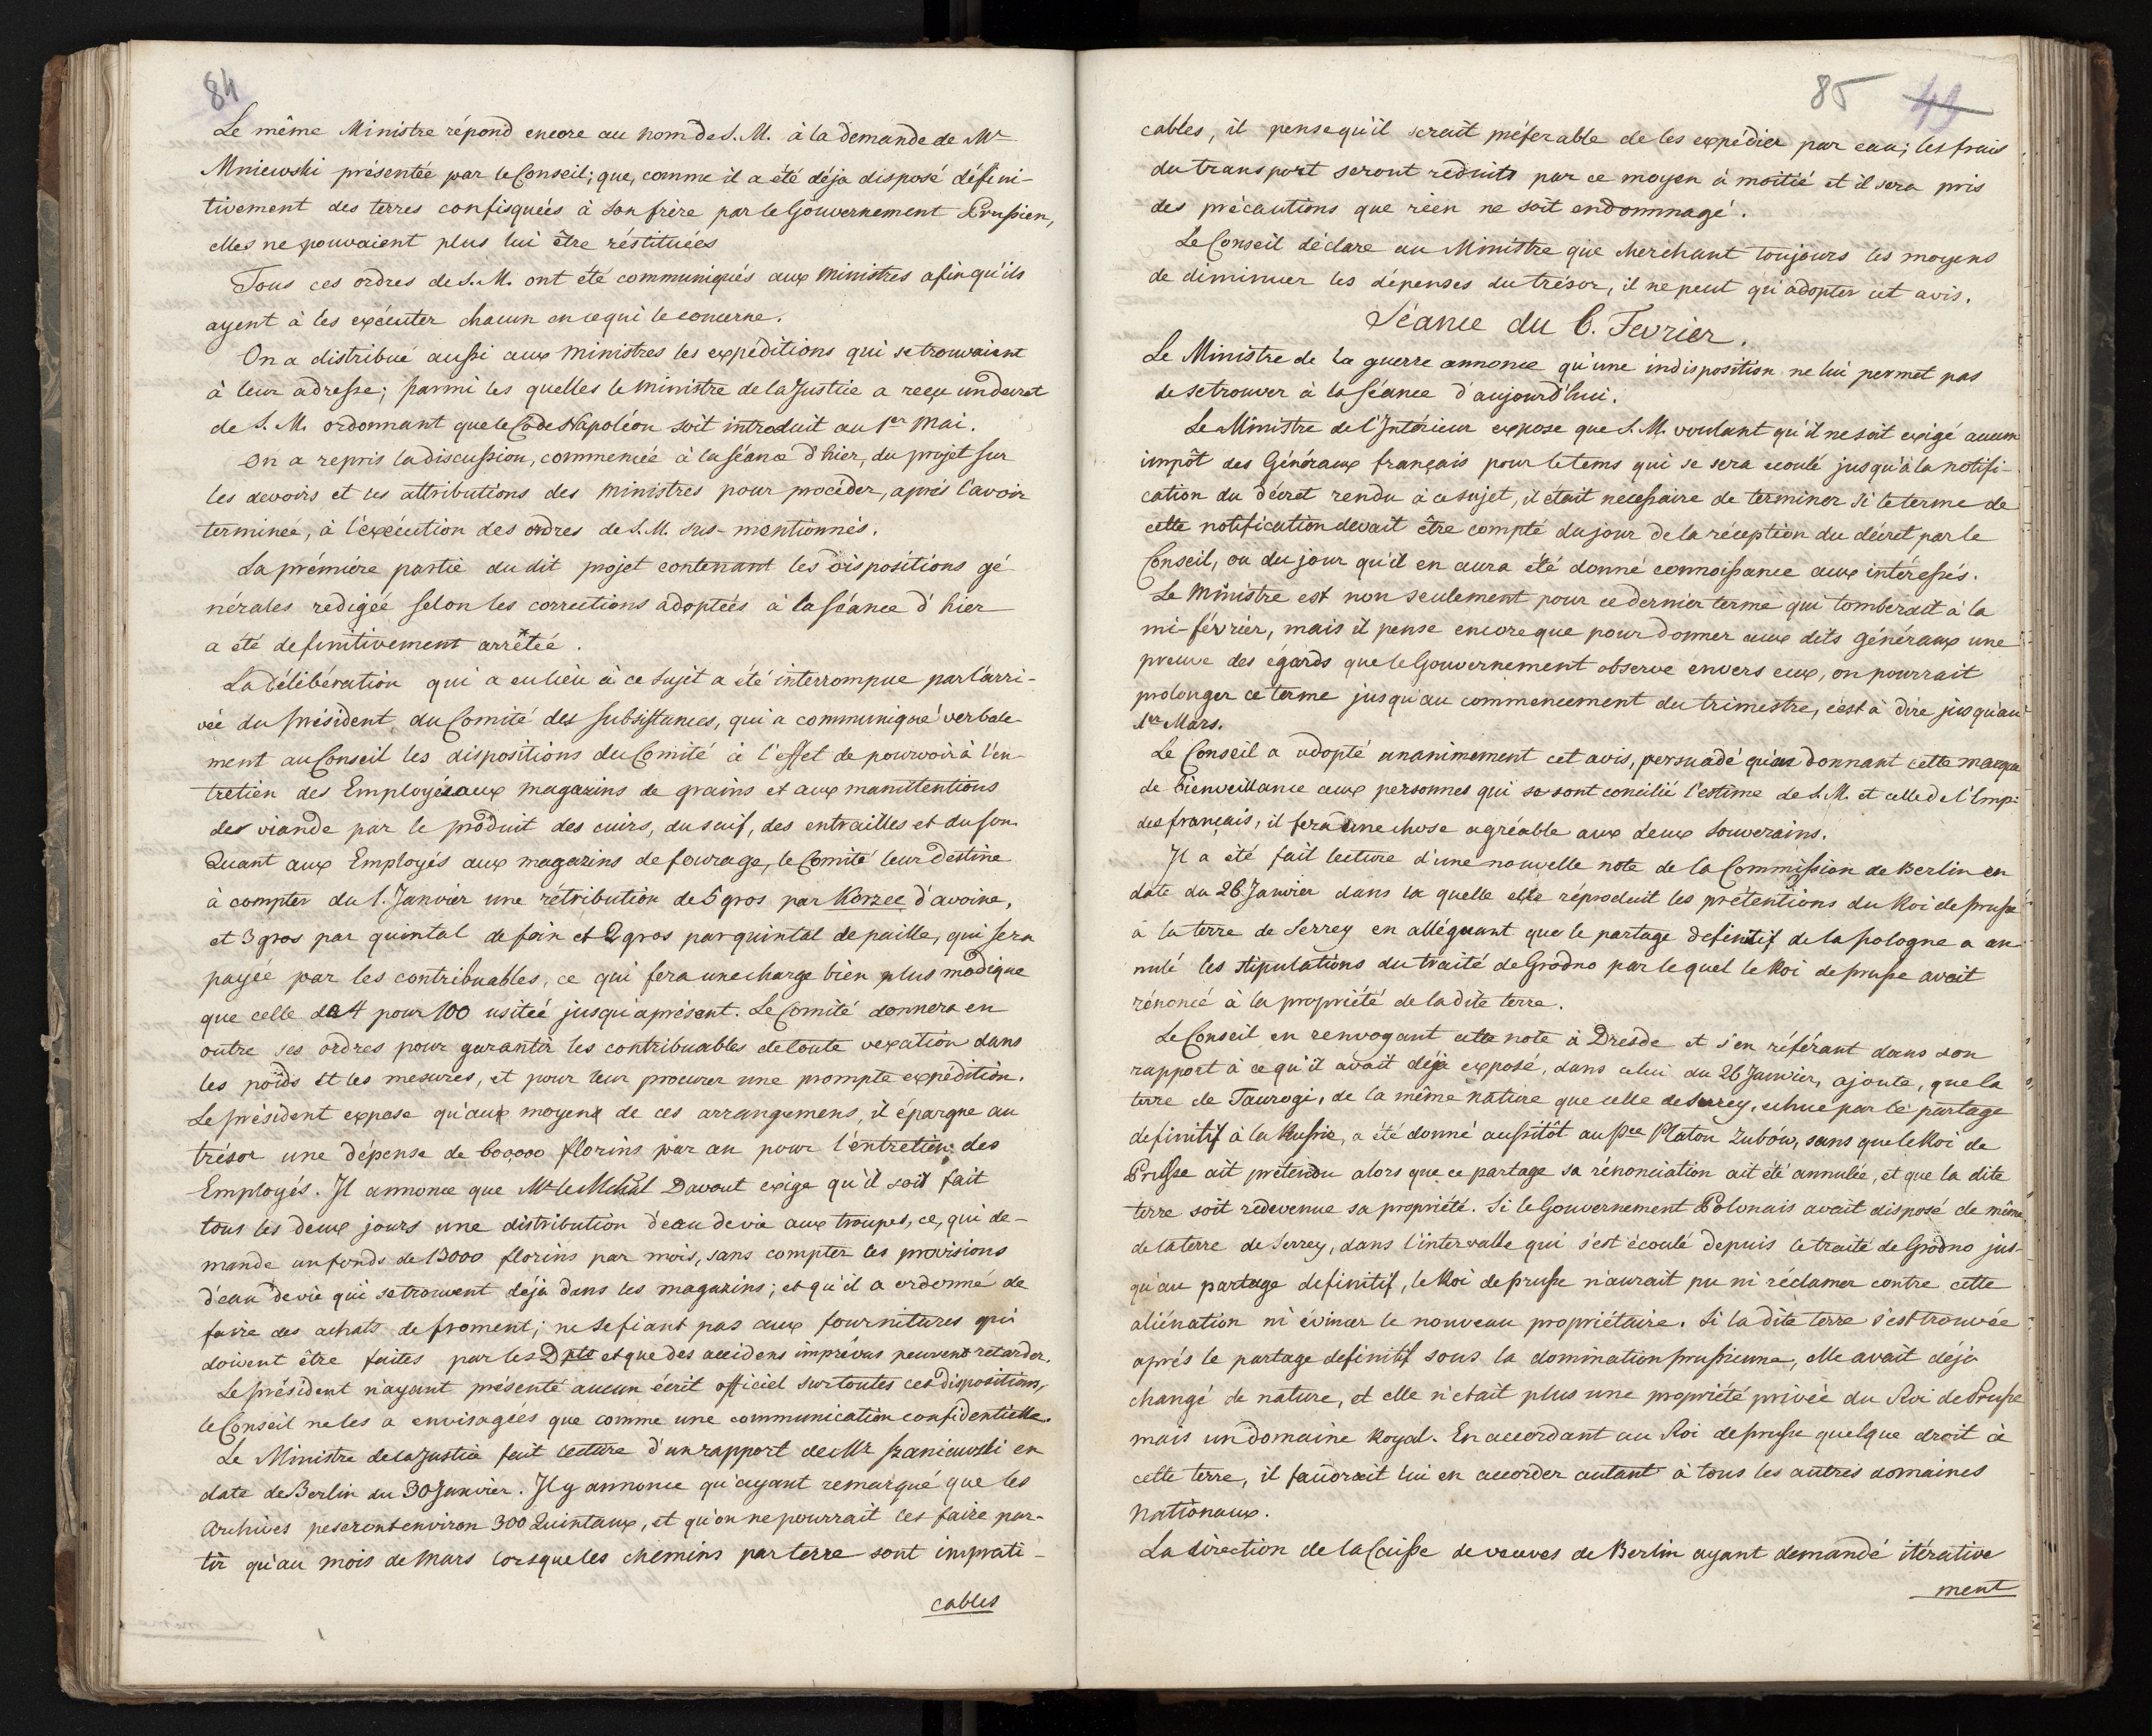 84
Le même Ministre répond encore au nom de S. M. à la demande de Mr
Mniewski présentée par le Conseil; que, comme il a été déja disposé défini-
tivement des terres confisquées à son frère par le Gouvernement Prussien,
elles ne pouvaient plus lui être réstituées
Tous ces ordres de S. M. ont été communiqués aux Ministres afin qu'ils
ayent à les exécuter chacun en ce qui le concerne.
On a distribué aussi aux Ministres les expéditions qui se trouvaient
à leur adresse; parmi les quelles le Ministre de la Justice a reçu un decret
de S. M. ordonnant que le Code Napoléon soit introduit au 1er Mai.
On a repris la discussion, commencée à la séance d'hier, du projet sur
les devoirs et les attributions des Ministres pour procéder, aprés l'avoir
terminée, à l'exécution des ordres de S. M. sus-mentionnés.
La prémière partie du dit projet contenant les dispositions gé
nérales redigée selon les corrections adoptées à la séance d'hier
a été definitivement arrêtée.
La délibération qui a eu lieu à ce sujet a été interrompue par l'arri-
vée du Président du Comité des Subsistances, qui a communiqué verbale-
ment au Conseil les dispositions du Comité à l'effet de pourvoir à l'en-
tretien des Employés aux magazins de grains et aux manutentions
des viande par le produit des cuirs, du suif, des entrailles et du son.
Quant aux Employés aux magazins de fourage, le Comité leur destine
à compter du 1. Janvier une rétribution de 5 gros par Korzec d'avoine,
et 3 gros par quintal de foin et 2 gros par quintal de paille, qui sera
payée par les contribuables, ce qui fera une charge bien plus modique
que celle de 4 pour 100 usitée jusqu'à présent. Le Comité donnera en
outre ses ordres pour garantir les contribuables de toute vexation dans
les poids et les mesures, et pour leur procurer une prompte expédition.
Le Président expose qu'aux moyens de ces arrangemens, il épargne au
trésor une dépense de 600,000 florins par an pour l'entretien des
Employés. Il annonce que Mr le Mchal Davout exige qu'il soit fait
tous les deux jours une distribution d'eau de vie aux troupes, ce, qui de-
mande un fonds de 13000 florins par mois, sans compter les provisions
d'eau de vie qui se trouvent déjà dans les magazins; et qu'il a ordonné de
faire des achats de froment; ne se fiant pas aux fournitures qui
doivent être faites par les Dpts et que des accidens imprévus peuvent retarder.
Le Président n'ayant présenté aucun écrit officiel sur toutes ces dispositions,
le Conseil ne les a envisagées que comme une communication confidentielle.
Le Ministre de la Justice fait lecture d'un rapport de Mr Szaniawski en
date de Berlin du 30 Janvier. Il y annonce qu'ayant remarqué que les
Archives peseront environ 300 Quintaux, et qu'on ne pourrait les faire par-
tir qu'au mois de Mars lorsque les chemins par terre sont imprati-
cables
85 49
cables, il pense qu'il serait préferable de les expédier par eau; les frais
du transport seront reduits par ce moyen à moitié et il sera pris
des précautions que rien ne soit endommagé.
Le Conseil déclare au Ministre que cherchant toujours les moyens
de diminuer les dépenses du trésor, il ne peut qu'adopter cet avis.
Séance du 6. Fevrier.
Le Ministre de la guerre annonce qu'une indisposition ne lui permet pas
de se trouver à la séance d'aujourd'hui.
Le Ministre de l'Intérieur expose que S. M. voulant qu'il ne soit exigé aucun
impôt des Généraux français pour le tems qui se sera ecoulé jusqu'à la notifi-
cation du décret rendu à ce sujet, il était necessaire de terminer si le terme de
cette notification devait être compté du jour de la réception du décret par le
Conseil, ou du jour qu'il en aura été donné connoissance aux intéressés.
Le Ministre est non seulement pour ce dernier terme qui tomberait à la
mi-février, mais il pense encore que pour donner aux dits Généraux une
preuve des égards que le Gouvernement observe envers eux, on pourrait
prolonger ce terme jusqu'au commencement du trimestre, c'est à dire jusqu'au
1er Mars.
Le Conseil a adopté unanimement cet avis, persuadé qu'en donnant cette marque
de bienveillance aux personnes qui se sont concilié l'estime de S. M. et celle de l'Emp:
des français, il fera une chose agréable aux deux Souverains.
Il a été fait lecture d'une nouvelle note de la Commission de Berlin en
date du 26 Janvier dans la quelle elle réproduit les prétentions du Roi de prusse
à la terre de Serrey en alléguant que le partage definitif de la pologne a an
nulé les stipulations du traité de Grodno par lequel le Roi de prusse avait
rénoncé à la propriété de la dite terre.
Le Conseil en renvoyant cette note à Dresde et s'en référant dans son
rapport à ce qu'il avait déja exposé, dans celui du 26 Janvier, ajoute, que la
terre de Taurogi, de la même nature que celle de Serrey, echue par le partage
definitif à la Russie, a été donné aussitôt au Pce Platon Zubów, sans que le Roi de
Prusse ait prétendu alors que ce partage sa rénonciation ait été annulée, et que la dite
terre soit redevenue sa propriété. Si le Gouvernement Polonais avait disposé de même
de la terre de Serrey, dans l'intervalle qui s'est écoulé depuis le traité de Grodno jus-
qu'au partage definitif, le Roi de prusse n'aurait pu ni réclamer contre cette
aliénation ni évincer le nouveau propriétaire. Si la dite terre s'est trouvée
aprés le partage definitif sous la domination prussienne, elle avait déjà
changé de nature, et elle n'etait plus une propriété privée du Roi de Prusse
mais un domaine Royal. En accordant au Roi de prusse quelque droit à
cette terre, il faudrait lui en accorder autant à tous les autres domaines
Nationaux.
La direction de la Caisse de veuves de Berlin ayant demandé itérative
ment